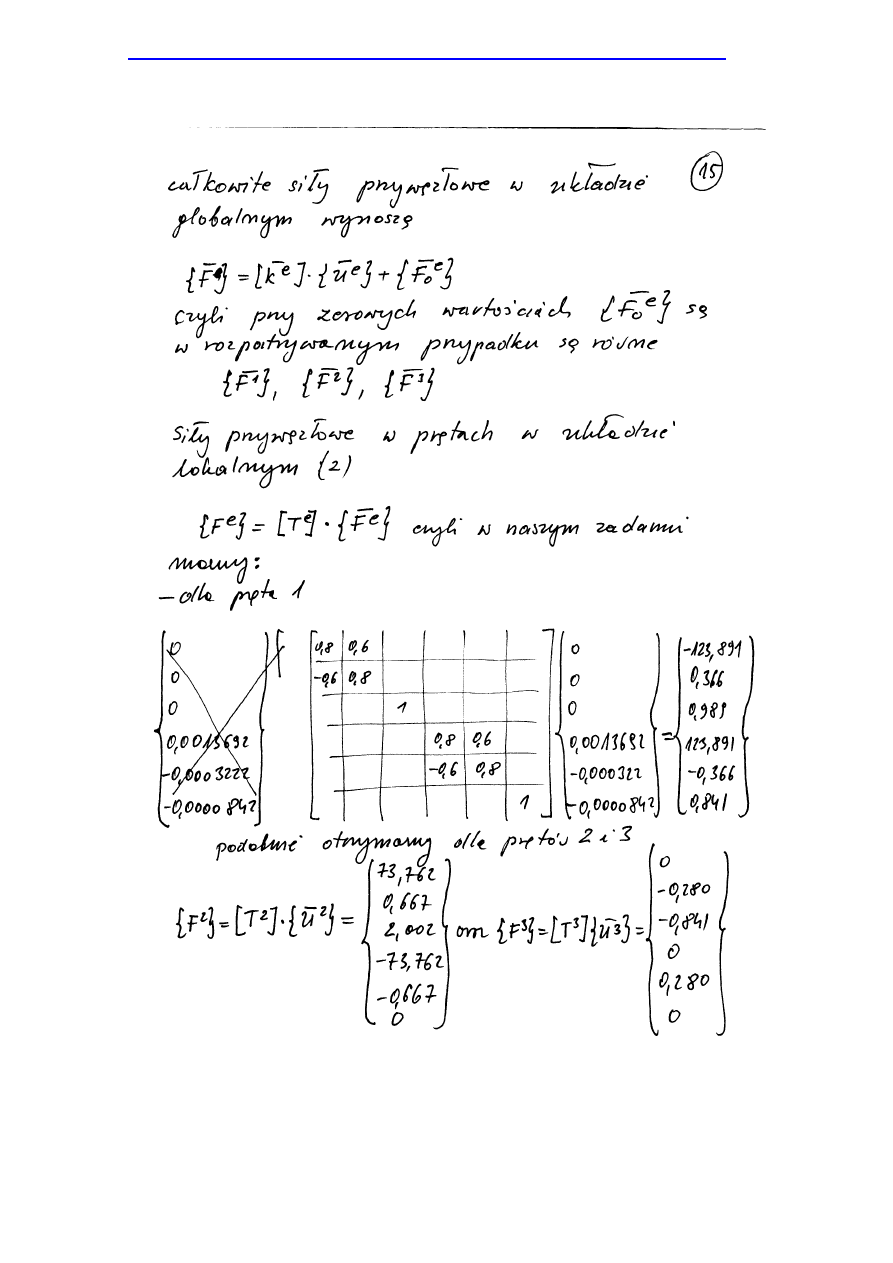 15
całkowite siły przywęzłowe w układzie
globalnym wynoszą
{F̄ᵉ} = [k̄ᵉ]·{ūᵉ} + {F̄₀ᵉ}
czyli przy zerowych wartościach {F̄₀ᵉ} są
w rozpatrywanym przypadku są równe
{F̄¹}, {F̄²}, {F̄³}
Siły przywęzłowe w prętach w układzie
lokalnym (2)
{Fᵉ} = [Tᵉ]·{F̄ᵉ} czyli w naszym zadaniu
mamy:
– dla pręta 1
0 0,8 0,6 0 -123,891
0 -0,6 0,8 0 0,366
0 1 0 0,989
0,0013692 0,8 0,6 0,0013692 = 123,891
-0,0003222 -0,6 0,8 -0,000322 -0,366
-0,0000842 1 -0,0000842 0,841
podobnie otrzymamy dla prętów 2 i 3
{F²} = [T²]·{ū²} =
73,762
0,667
2,002
-73,762
-0,667
0
oraz {F³} = [T³]{ū³} =
0
-0,280
-0,841
0
0,280
0